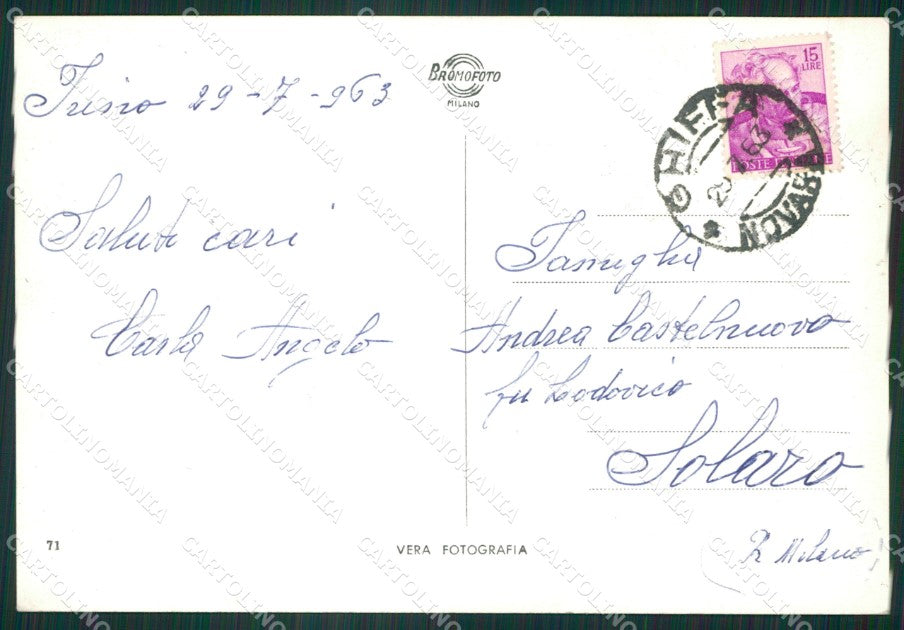 29-7-963
BROMOFOTO
MILANO
15
LIRE
POSTE ITALIANE
GHIFFA
NOVARA
63
Saluti cari
Carla Angelo
Famiglia
Andrea Castelnuovo
fu Lodovico
Solaro
P. Milano
71
VERA FOTOGRAFIA
CARTOLINOMANIA